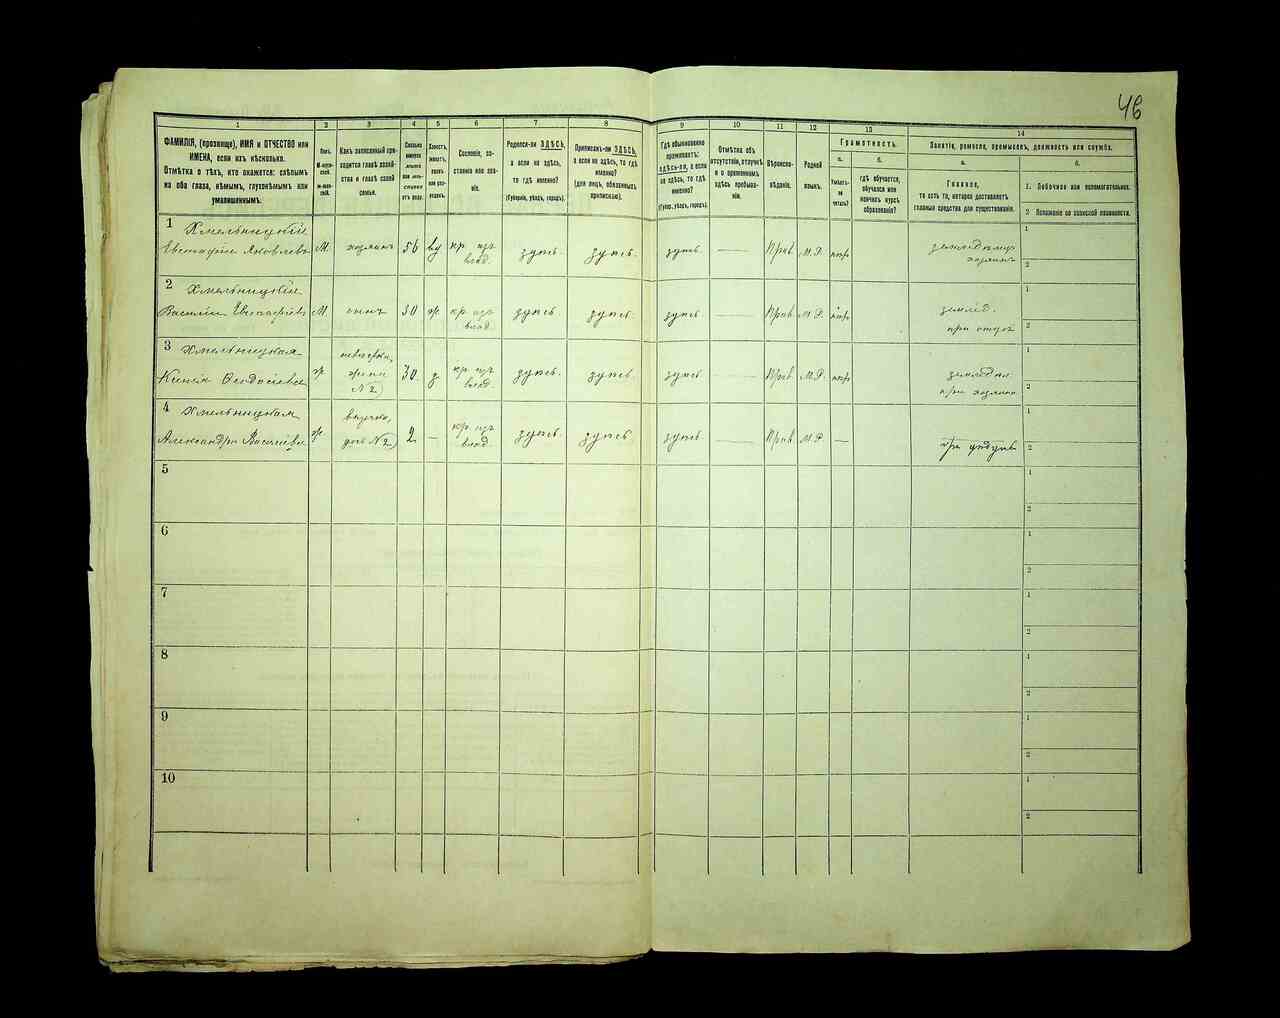 46
1 2 3 4 5 6 7 8 9 10 11 12 13 14
ФАМИЛІЯ, (прозвище), ИМЯ и ОТЧЕСТВО или
ИМЕНА, если ихъ нѣсколько.
Отмѣтка о тѣхъ, кто окажется: слѣпымъ
на оба глаза, нѣмымъ, глухонѣмымъ или
умалишеннымъ.
Полъ.
М-мужской.
Ж-женскій.
Какъ записанный приходится
главѣ хозяйства и главѣ своей
семьи.
Сколько
минуло
лѣтъ
или мѣсяцевъ
отъ роду.
Холостъ,
женатъ,
вдовъ
или разведенъ.
Сословіе, состояніе
или званіе.
Родился-ли ЗДѢСЬ,
а если не здѣсь,
то гдѣ именно?
(Губернія, уѣздъ, городъ).
Приписанъ-ли ЗДѢСЬ,
а если не здѣсь, то гдѣ
именно?
(для лицъ, обязанныхъ
припискою).
Гдѣ обыкновенно
проживаетъ:
здѣсь-ли, а если
не здѣсь, то гдѣ
именно?
(Губерн., уѣздъ, городъ).
Отмѣтка объ
отсутствіи, отлучкѣ
и о временномъ
здѣсь пребываніи.
Вѣроисповѣданіе.
Родной
языкъ.
Грамотность.
а.
Умѣетъ-ли
читать?
б.
гдѣ обучается,
обучался или
кончилъ курсъ
образованія?
Занятіе, ремесло, промыселъ, должность или служба.
а.
Главное,
то есть то, которое доставляетъ
главныя средства для существованія.
б.
1. Побочное или вспомогательное.
2 Положеніе по воинской повинности.
1 Хмельницкій
Евстафій Яковлевъ М. хозяинъ 56 ву кр. изъ влад. здѣсь. здѣсь. здѣсь. — Прав М.Р. нѣтъ
1
2
2 Хмельницкій
Василій Евстафіевъ М. сынъ 30 ж. кр изъ влад. здѣсь. здѣсь. здѣсь — Прав М.Р. нѣтъ землед.
1
2
3 Хмельницкая
ж. невѣстка, жена №2) 30. з кр. изъ влад. здѣсь. здѣсь. здѣсь — Прав М.Р. нѣтъ
1
2
4 Хмельницкая
Александра Василіева ж. внучка, дочь №2) 2 — кр. изъ влад. здѣсь. здѣсь здѣсь — Прав М.Р — при
1
2
5
1
2
6
1
2
7
1
2
8
1
2
9
1
2
10
1
2